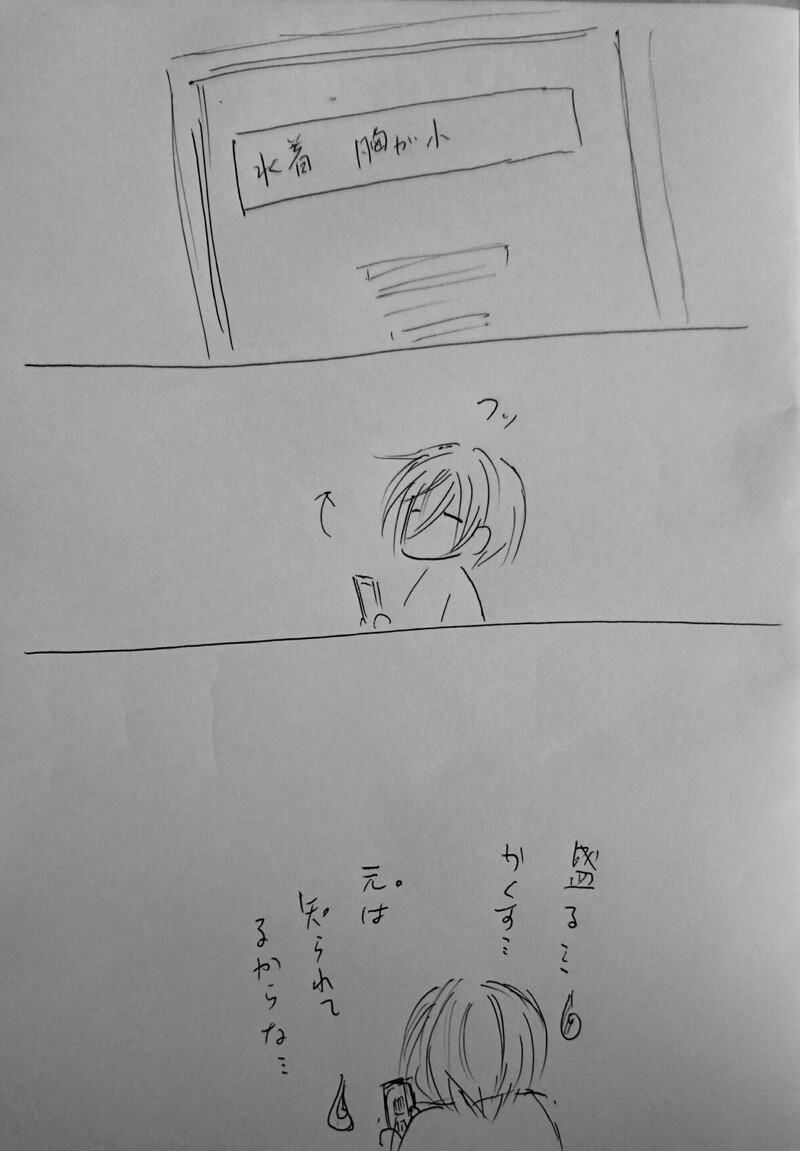 水着 胸が小
フッ
盛る…
かくす…
元。は
知られて
るからな…